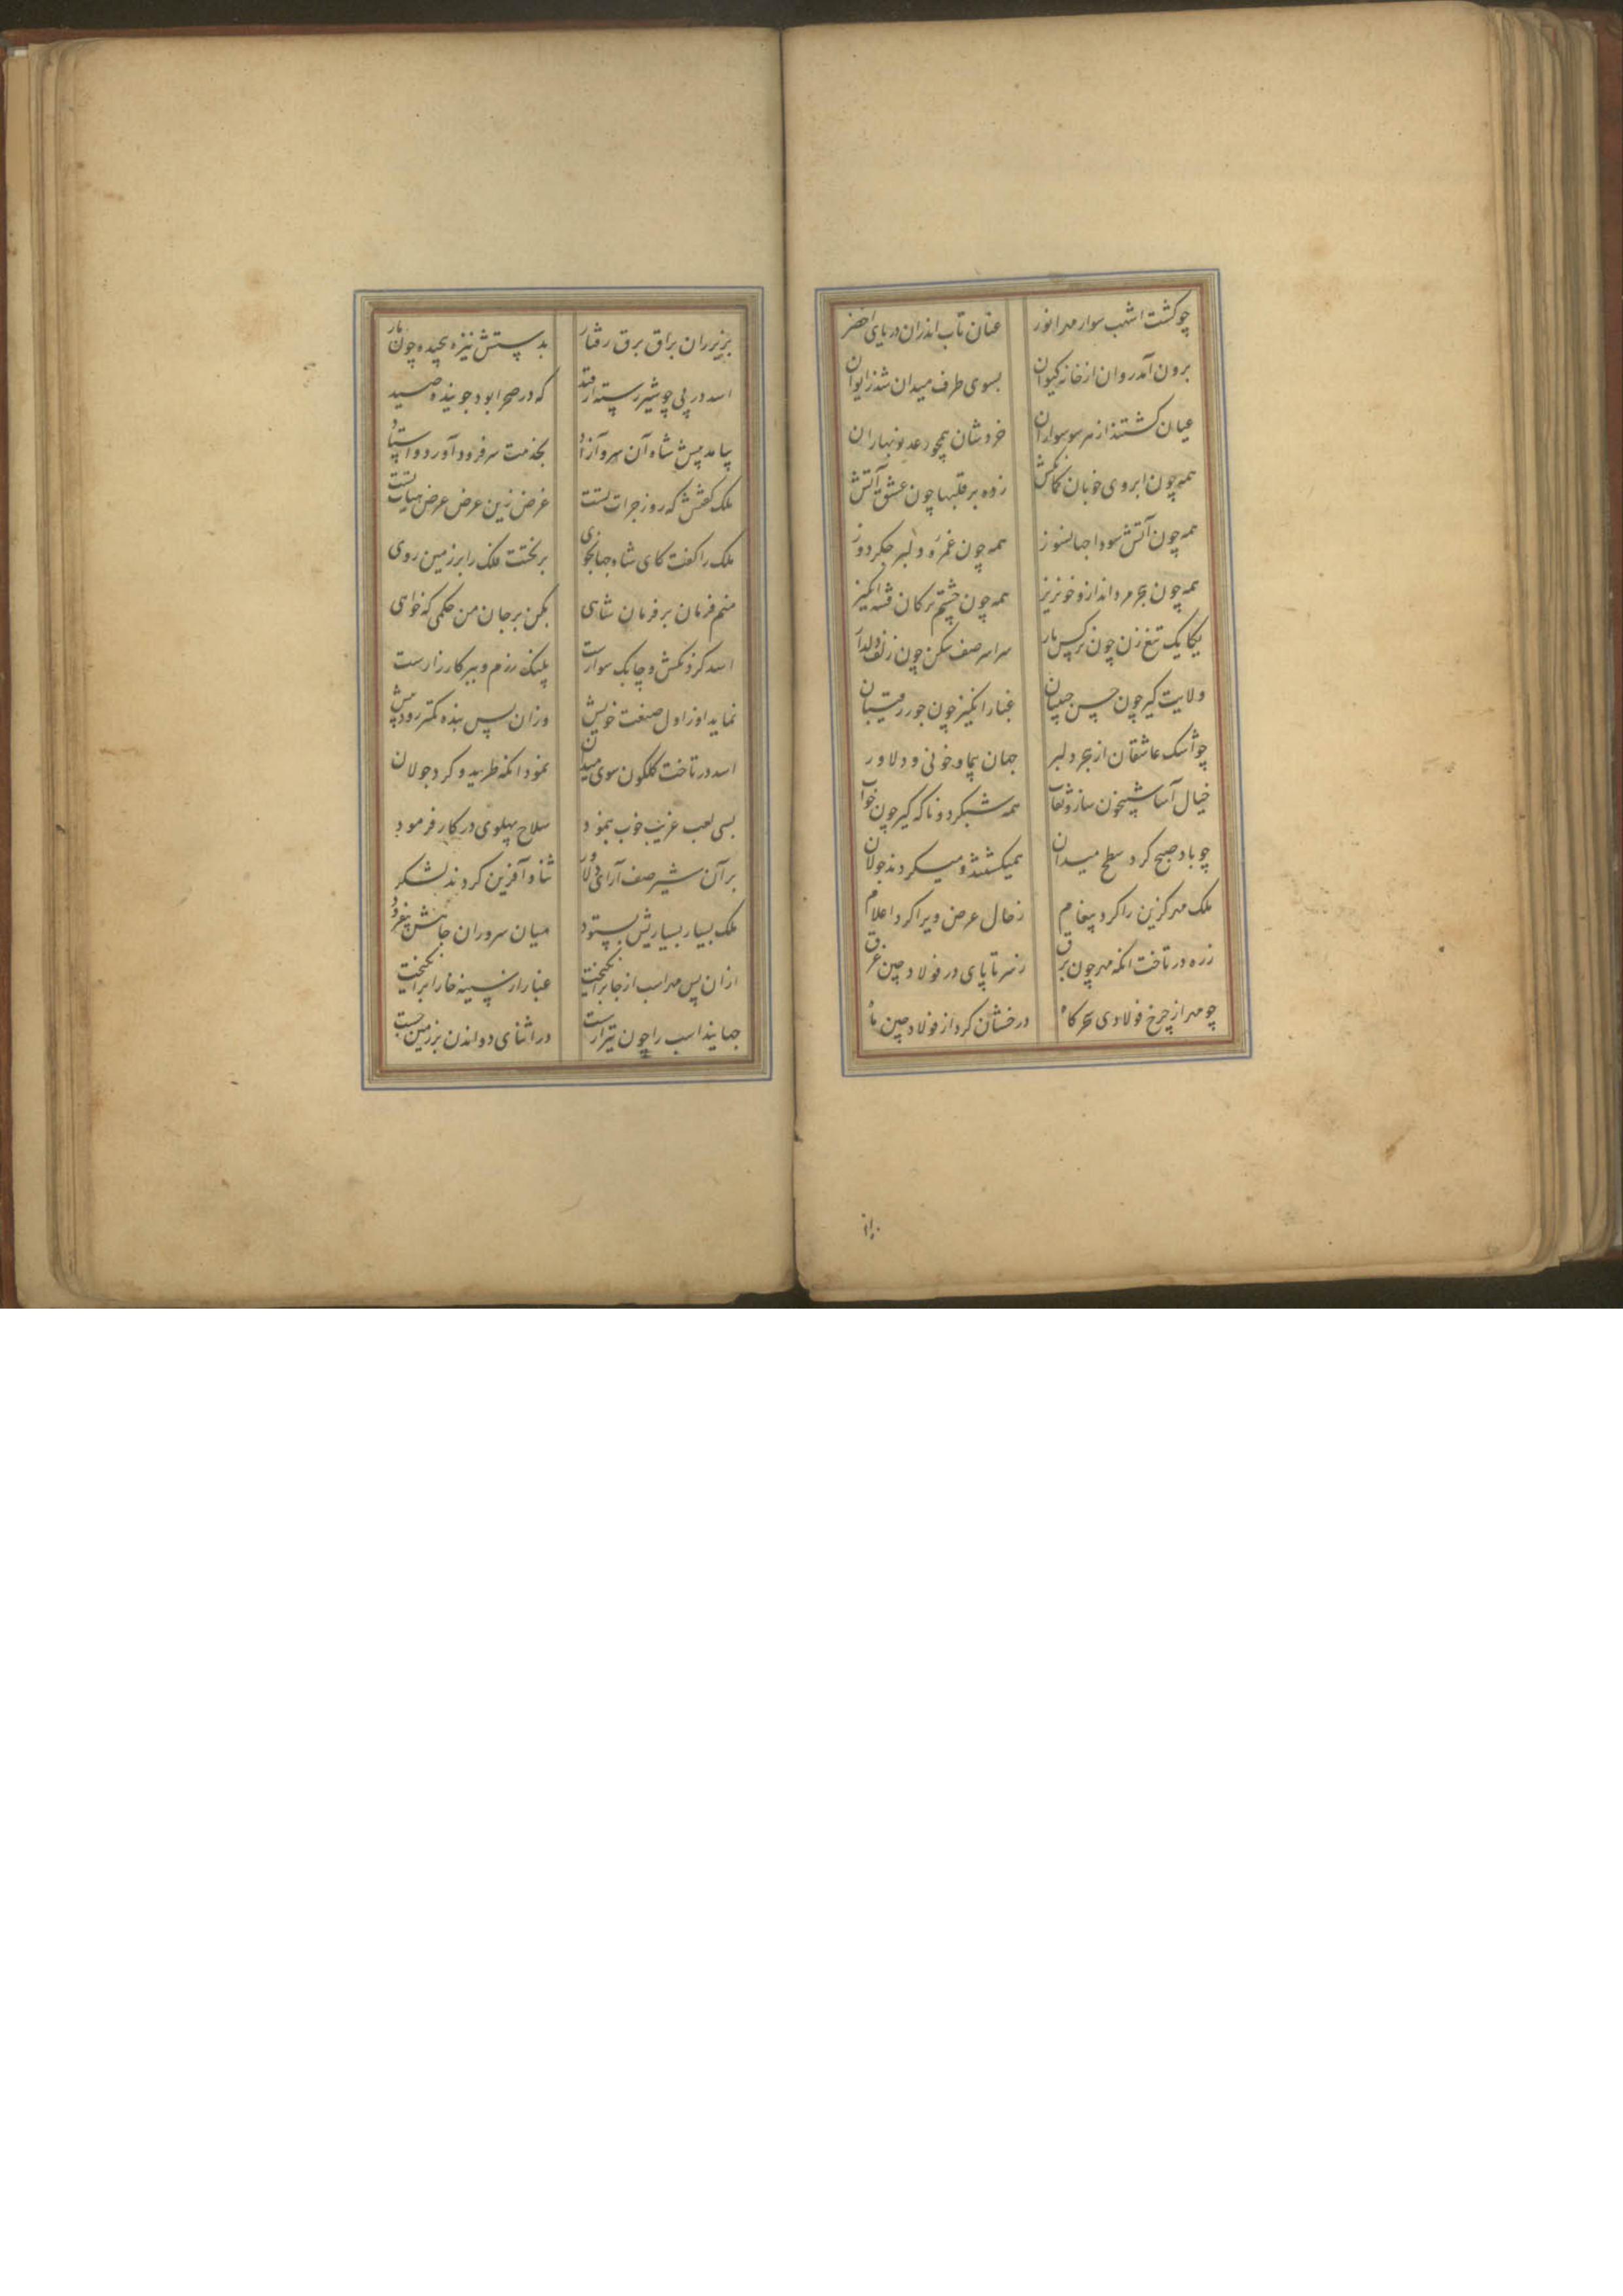 چو کشت اشهب سوار مهر انور عنان تاب اندران دریای اخضر
برون آمد روان از خانه کیوان بسوی طرف میدان شد ز ایوان
عیان کشتند از هر سو سواران خروشان همچو رعد نوبهاران
همه چون ابروی خوبان کمانکش زده بر قلبها چون عشق آتش
همه چون آتش سودا جهانسوز همه چون غمزه دلبر جکردوز
همه چون هجر مرد انداز و خونریز همه چون چشم ترکان فتنه انکیز
یکایک تیغ زن چون نرکس یار سراسر صف شکن چون زلف دلدار
ولایت کیر چون حسن حبیبان غبار انکیز چون جور رقیبان
چو اشک عاشقان از هجر دلبر جهان پیما و خونی و دلاور
خیال آسا شبیخون ساز و همه شبکرد و ناکه کیر چون خواب
چو باد صبح کرد سطح میدان همیکشتند و میکردند جولان
ملک مهر کزین را کرد پیغام ز حال عرض ویرا کرد اعلام
زره در تاخت انکه مهر چون برق ز سر تا پای در فولاد چین غرق
چو مهر از چرخ فولادی سحرکاه درخشان کرد از فولاد چین ماه
بزیر ران براق برق رفتار بدستش نیزه پیچیده چون مار
اسد در پی چو شیر رسته از قید که در صحرا بود جوینده صید
بیامد پیش شاه آن سرو آزاد بخدمت سر فرود آورد و استاد
ملک کفتش که روز جرات تست غرض زین عرض عرض هیات تست
ملک را کفت کای شاه جهانجوی بر تختت فلک را بر زمین روی
منم فرمان بر فرمان شاهی بکن بر جان من حکمی که خواهی
اسد کرد و چابک سوارست پلنک رزم و ببر کارزارست
نماید او ز اول صنعت خویش وزان پس بنده کمتر رود پیش
اسد در تاخت کلکون سوی میدان نمود انکه طرید و کرد جولان
بسی لعب غریب خوب بنمود سلاح پهلوی در کار فرمود
بر آن شیر صف آرای دلاور ثنا و آفرین کردند لشکر
ملک بسیار بسیارش بستود میان سروران جاهش بیفزود
از ان پس مهر اسب از جا برانکیخت غبار از سینه خارا برانکیخت
جهانید اسب را چون تیر از شست در اثنای دواندن بر زمین جست
بزیر